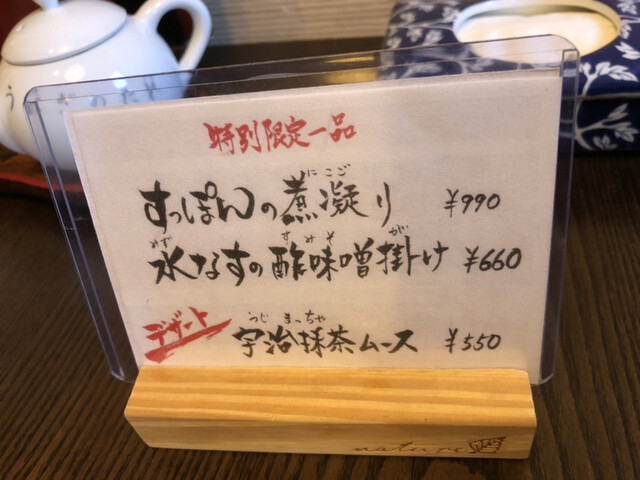 特別限定一品
にこご
すっぽんの煮凝り ¥990
みず すみそ が
水なすの酢味噌掛け ¥660
うじ まっちゃ
デザート 宇治抹茶ムース ¥550
nature